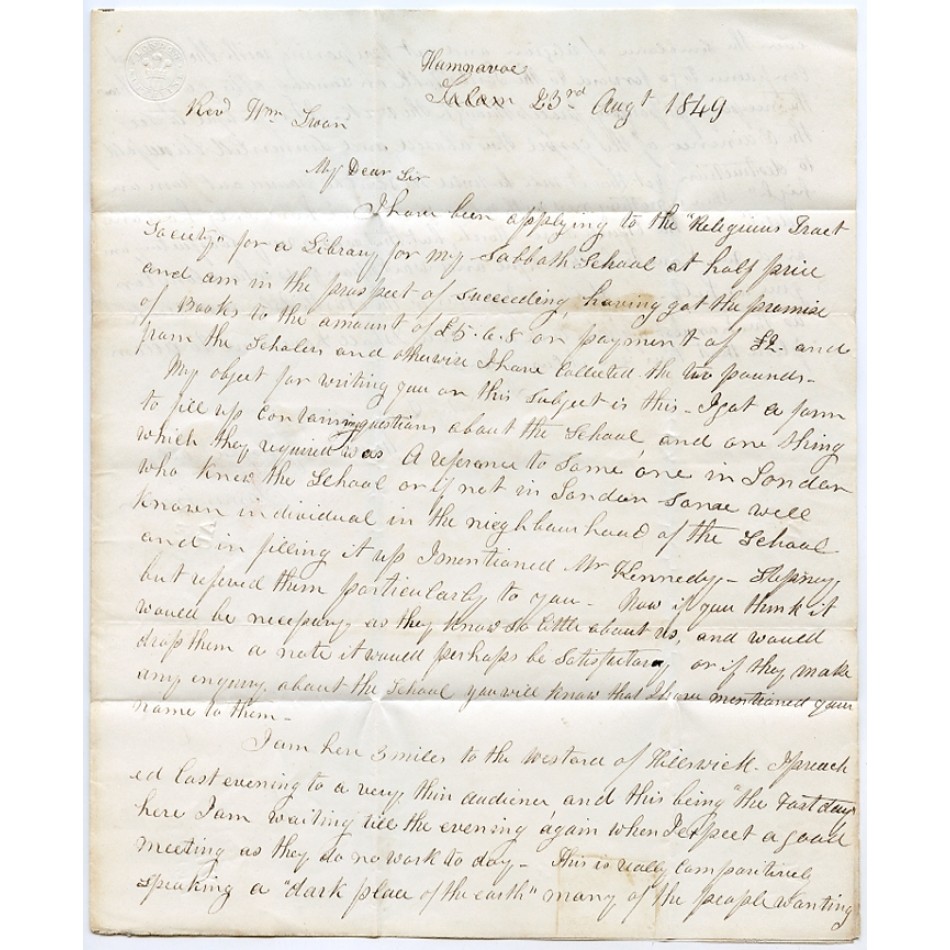 Hamnavoe
23rd Augt 1849
Revd Wm Swan
My Dear Sir
I have been applying to the "Religious Tract
Society" for a Library for my Sabbath School at half price
and am in the prospect of succeeding, having got the promise
of Books to the amount of £5.6.8 on payment of £2. and
from the Scholars and otherwise I have collected the two pounds -
My object for writing you on this subject is this - I got a form
to fill up containing questions about the School and one thing
which they required was A referance to some one in London
who knew the School or if not in London some well
known individual in the nieghbourhood of the School
and in filling it up I mentioned Mr Kennedy, - Stepney,
but refered them particularly to you - Now if you think it
would be necessary, as they know so little about us, and would
drop them a note it would perhaps be satisfactory, or if they make
any enquiry about the School you will know that I have mentioned your
name to them -
I am here 3 miles to the westard of Hillswick. I preach
ed last evening to a very thin audience and this being "the Fast day"
here I am waiting till the evening again when I expect a good
meeting as they do no work to day - This is really
speaking a "dark place of the earth" many of the people wanting